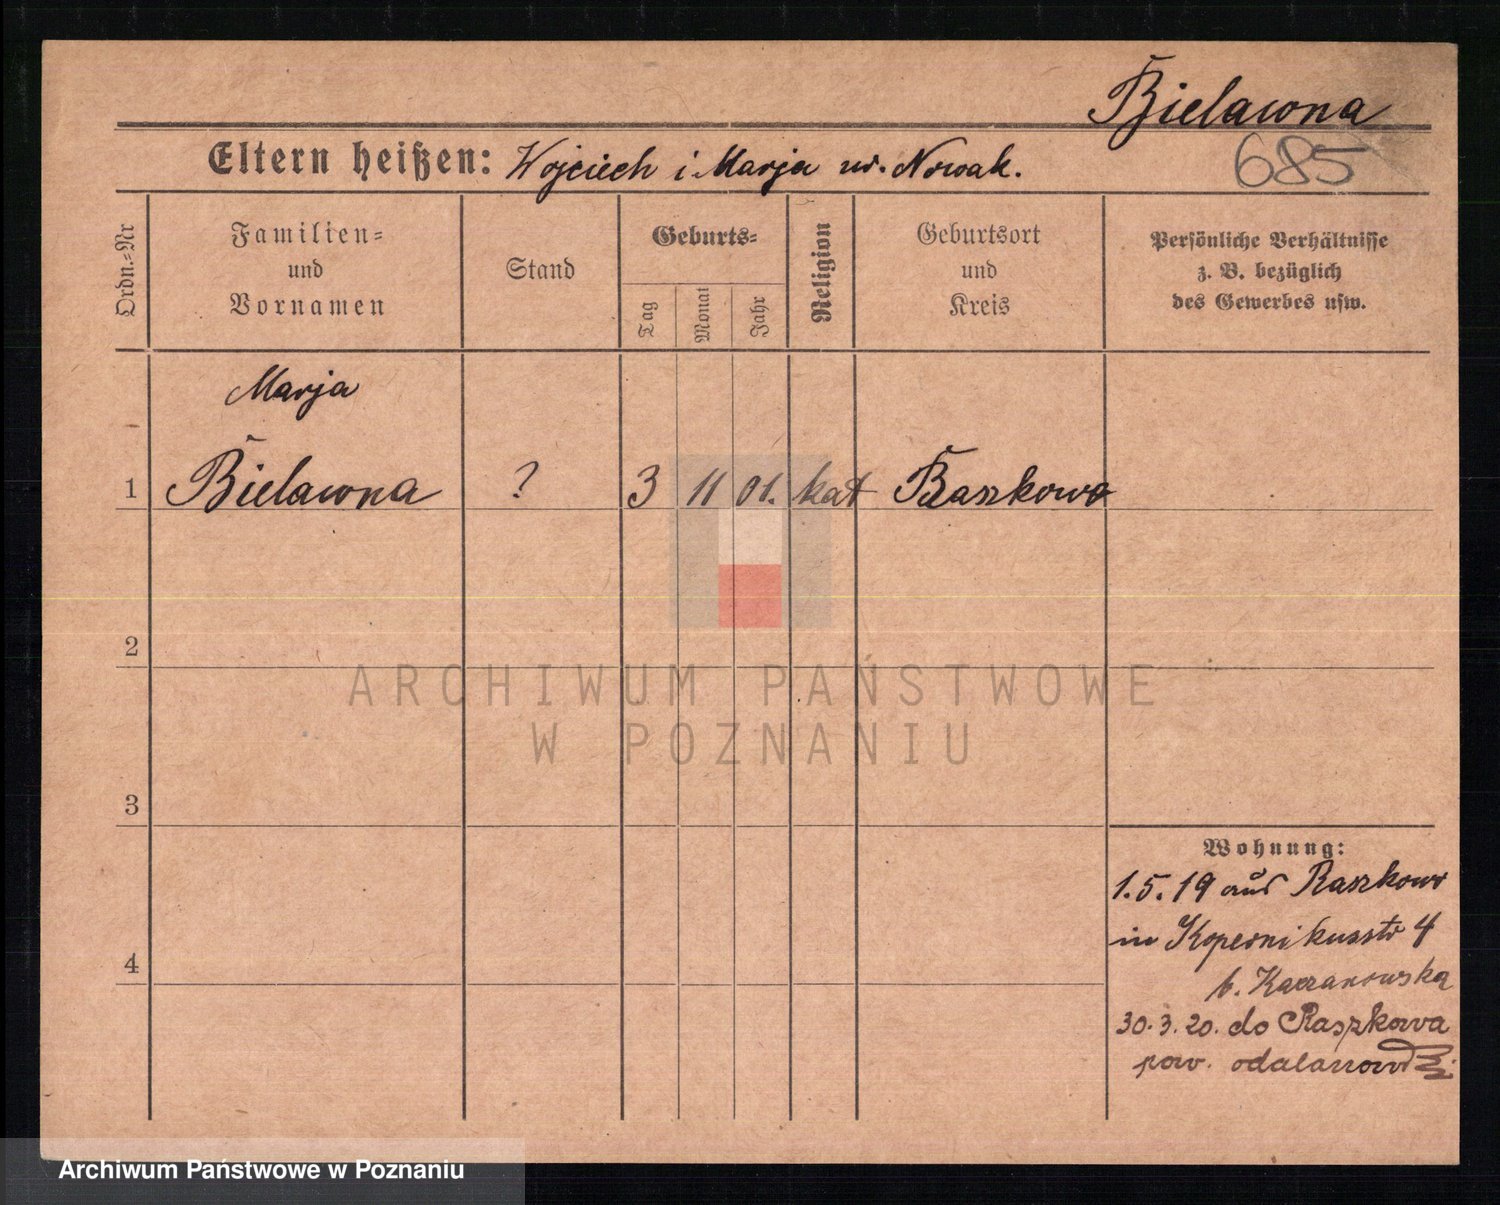 Bielawna
685
Eltern heißen: Wojciech i Marja ur. Nowak.
Ordn.-Nr
Familien-
und
Vornamen
Stand
Geburts-
Tag
Monat
Jahr
Religion
Geburtsort
und
Kreis
Persönliche Verhältnisse
z. B. bezüglich
des Gewerbes usw.
Marja
1 Bielawna ? 3 11 01. kat Raszkowo
2
3
4
Wohnung:
1.5.19 aus Raszkow
in Kopernikusstr 4
b. Kaczanowska
30.3.20. do Raszkowa
pow. odalanow
ARCHIWUM PAŃSTWOWE
W POZNANIU
Archiwum Państwowe w Poznaniu